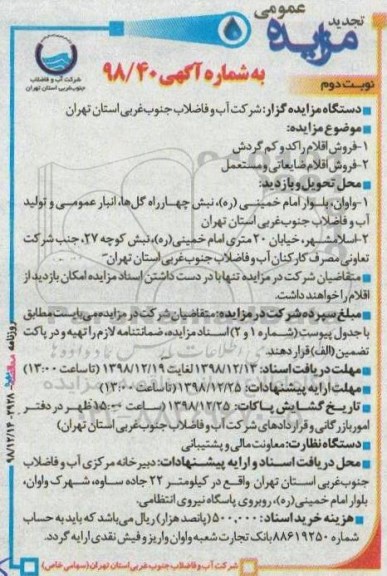 تجدید
مزایده
عمومی
به شماره آگهی ۹۸/۴۰
نوبت دوم
شرکت آب و فاضلاب
جنوب غربی استان تهران
دستگاه مزایده گزار: شرکت آب و فاضلاب جنوب غربی استان تهران
موضوع مزایده:
۱-فروش اقلام راکد و کم گردش
۲-فروش اقلام ضایعاتی و مستعمل
محل تحویل و بازدید:
۱-واوان، بلوار امام خمینی (ره)، نبش چهارراه گل‌ها، انبار عمومی و تولید
آب و فاضلاب جنوب غربی استان تهران
۲-اسلامشهر، خیابان ۲۰ متری امام خمینی (ره)، نبش کوچه ۲۷، جنب شرکت
تعاونی مصرف کارکنان آب و فاضلاب جنوب غربی استان تهران
متقاضیان شرکت در مزایده تنها با در دست داشتن اسناد مزایده امکان بازدید از
اقلام را خواهند داشت.
مبلغ سپرده شرکت در مزایده: متقاضیان شرکت در مزایده می‌بایست مطابق
با جدول پیوست (شماره ۱ و ۲) اسناد مزایده، ضمانتنامه لازم را تهیه و در پاکت
تضمین (الف) قرار دهند.
مهلت دریافت اسناد: ۱۳۹۸/۱۲/۱۳ لغایت ۱۳۹۸/۱۲/۱۹ (تا ساعت ۱۳:۰۰)
مهلت ارایه پیشنهادات: ۱۳۹۸/۱۲/۲۵ (تا ساعت ۱۳:۰۰)
تاریخ گشایش پاکات: ۱۳۹۸/۱۲/۲۵ (ساعت ۱۵:۰۰ ظهر در دفتر
امور بازرگانی و قراردادهای شرکت آب و فاضلاب جنوب غربی استان تهران)
دستگاه نظارت: معاونت مالی و پشتیبانی
محل دریافت اسناد و ارایه پیشنهادات: دبیرخانه مرکزی آب و فاضلاب
جنوب غربی استان تهران واقع در کیلومتر ۲۲ جاده ساوه، شهرک واوان،
بلوار امام خمینی (ره)، روبروی پاسگاه نیروی انتظامی.
هزینه خرید اسناد: ۵۰۰,۰۰۰ (پانصد هزار) ریال می‌باشد که باید به حساب
شماره ۸۸۶۱۹۲۵۰ بانک تجارت شعبه واوان واریز و فیش نقدی ارایه گردد.
شرکت آب و فاضلاب جنوب غربی استان تهران (سهامی خاص)
روزنامه
۹۸/۱۲/۱۴-۲۹۲۸